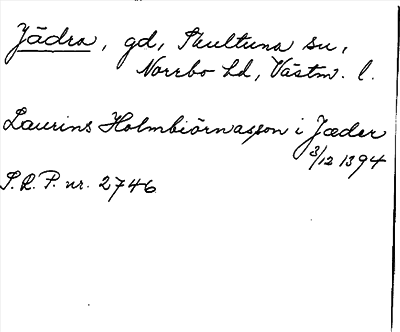 Jädra, gd, Skultuna sn,
Norrbo hd, Västm. l.
Laurins Holmbiörnasson i Jæder
3/12 1394
S.R.P. nr. 2746